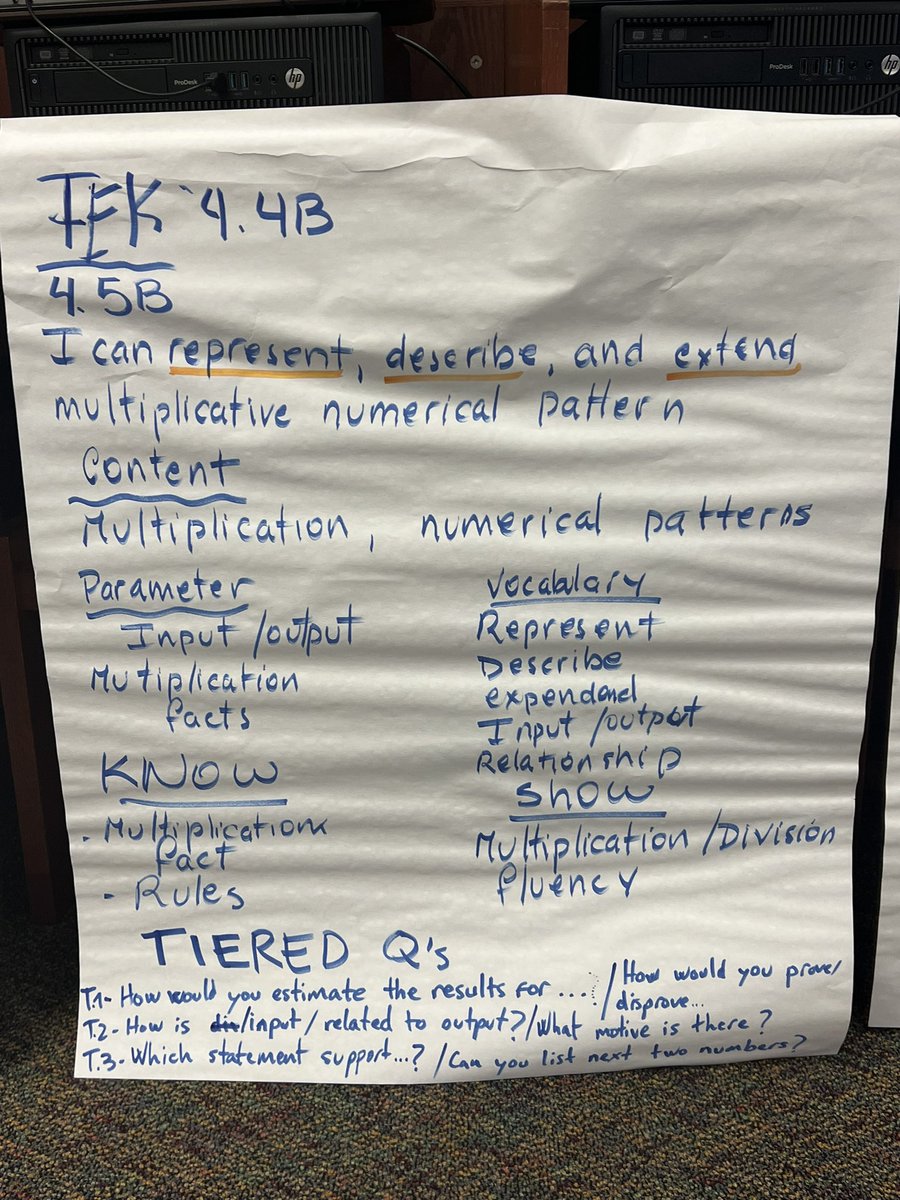 ProDesk
hp
ProDesk
hp
TEK 4.4B
4.5B
I can represent, describe, and extend
multiplicative numerical pattern
Content
Multiplication, numerical patterns
Parameter
Input/output
Mutiplication
facts
Vocabulary
Represent
Describe
Input/output
Relationship
KNOW
- Multiplication
Fact
- Rules
Show
Multiplication/División
fluency
TIERED Q's
T.1- How would you estimate the results for .... / How would you prove/
disprove...
T.2- How is /input/related to output?/What motive is there?
T.3- Which statement support...? /Can you list next two numbers?